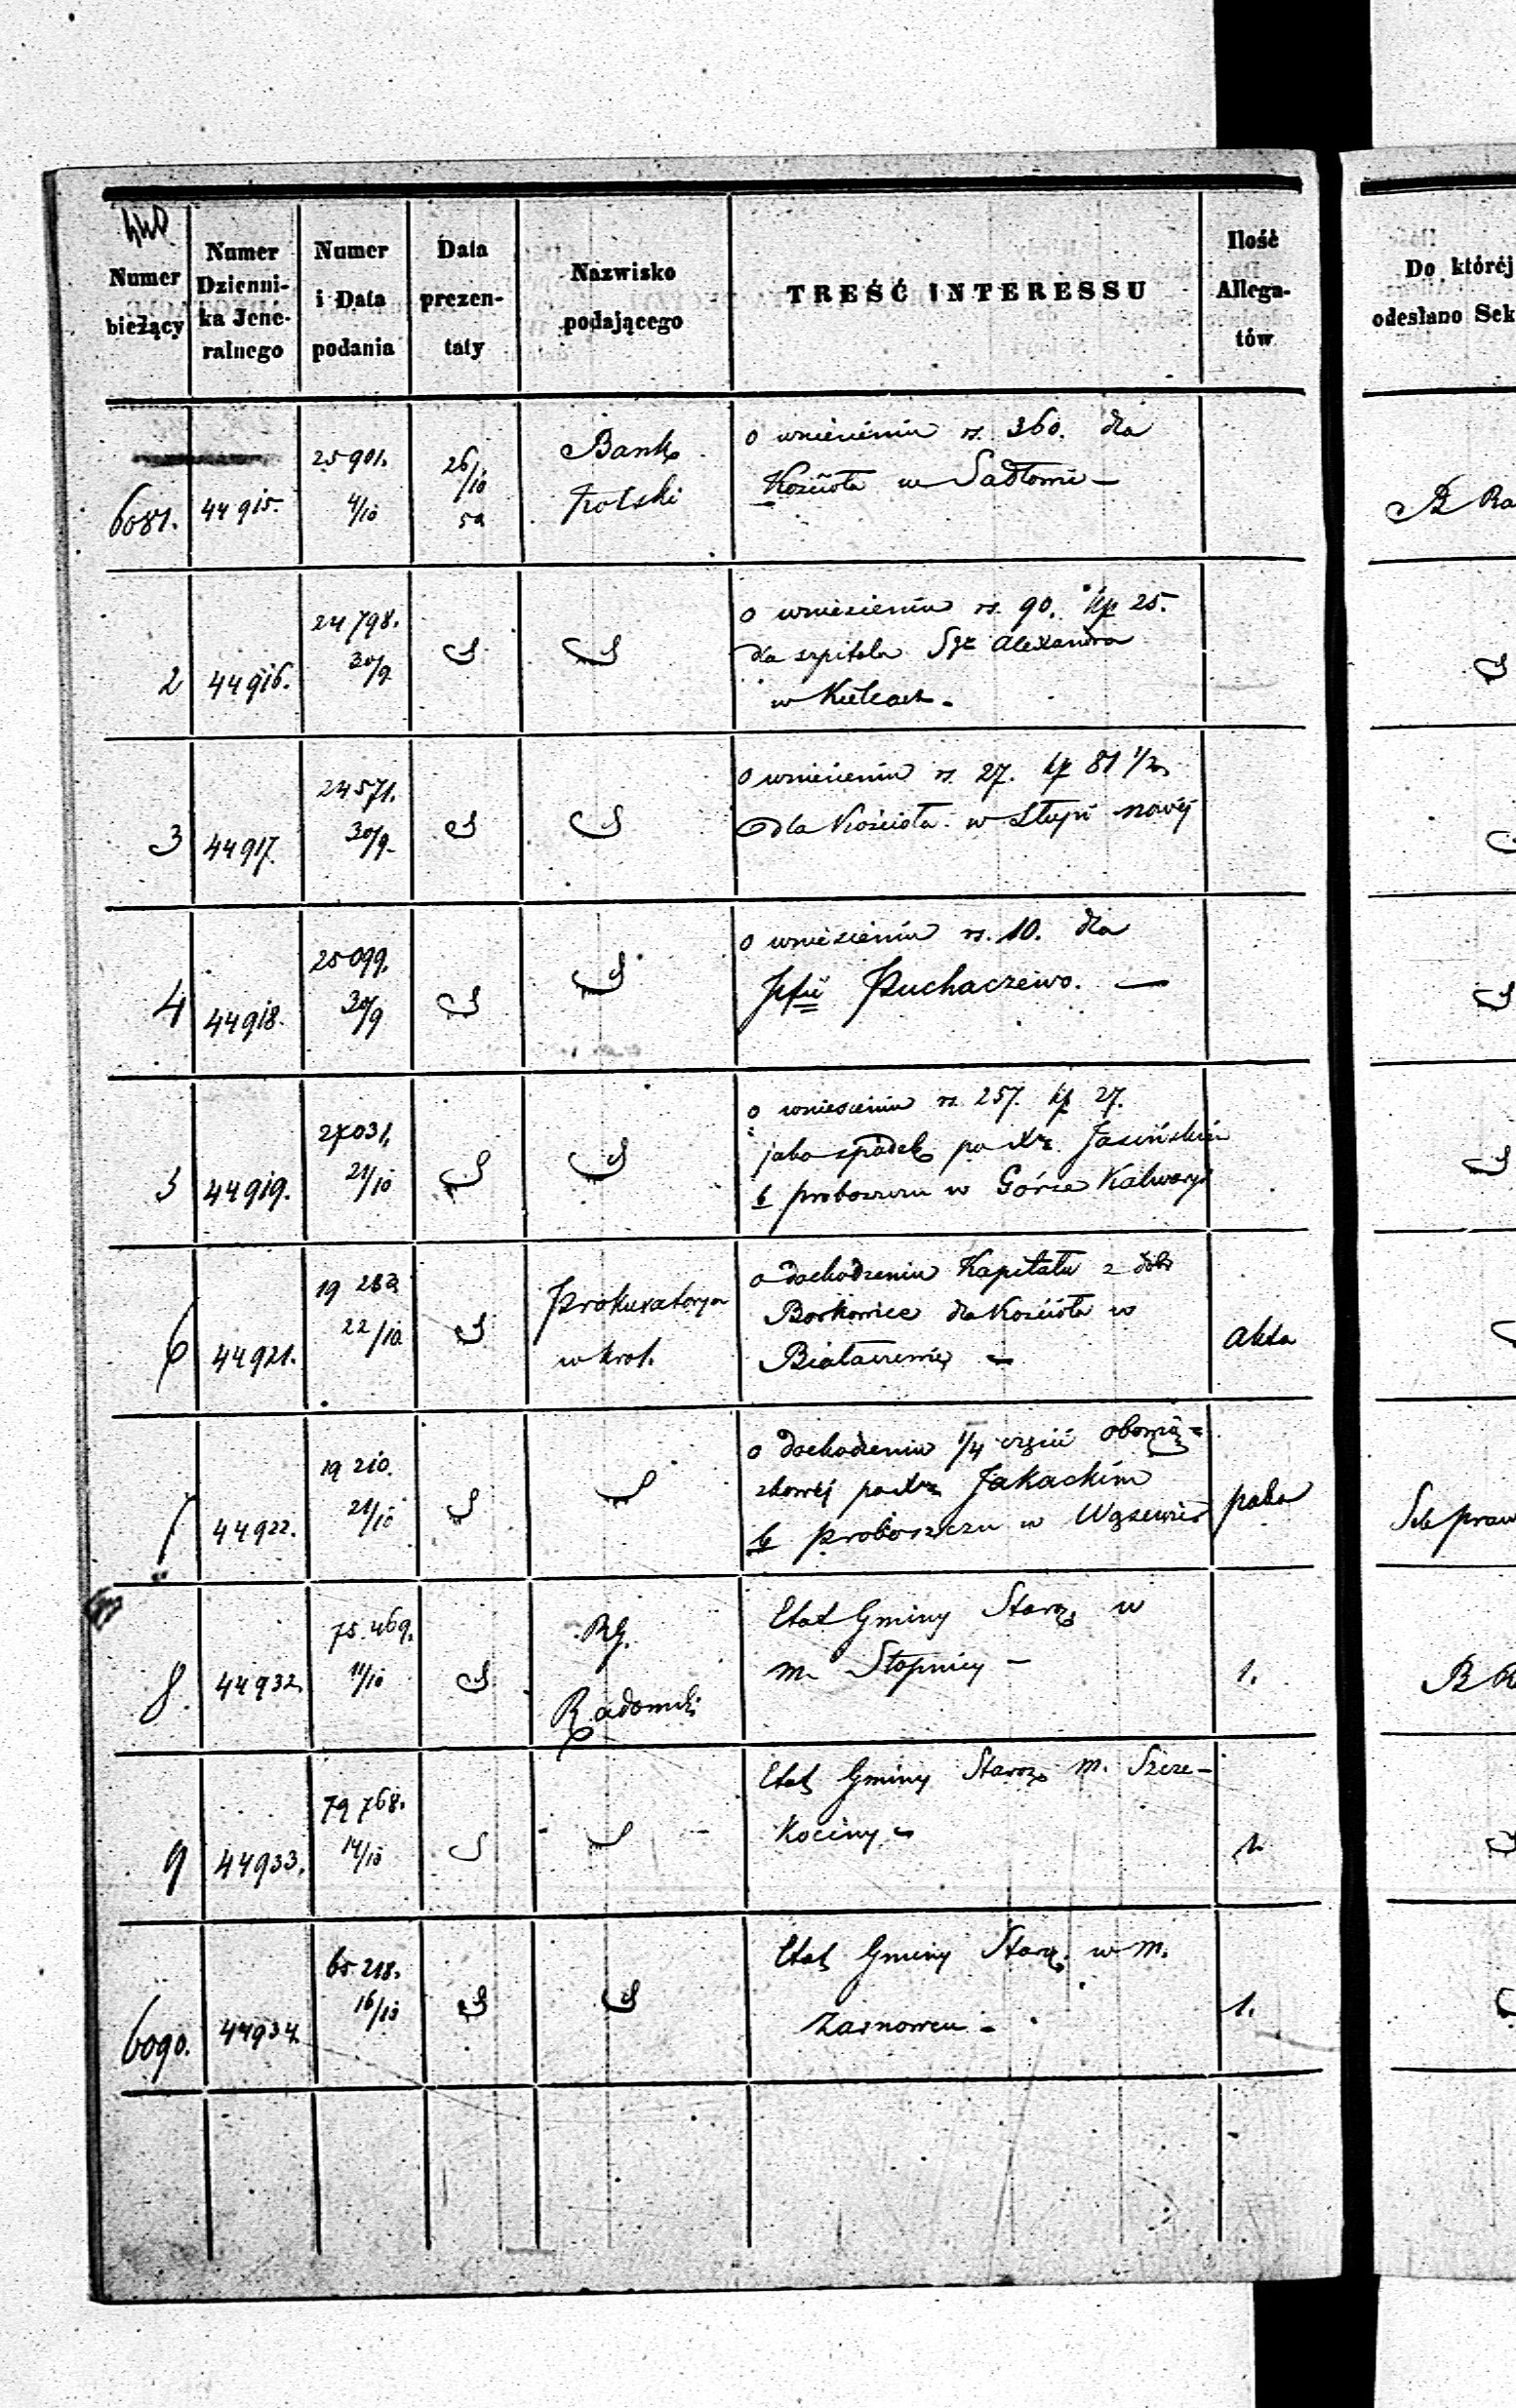 Numer bieżący
Numer Dzienni-ka Jene-ralnego
Numer i Data podania
Data prezen-taty
Nazwisko podającego
TREŚĆ INTERESSU
Ilość Allega-tów
Do któréj odesłano Sek
6081. 44915. 25901. 4/10 26/10 52 Bank Polski
o wniesieniu rs. 360. dla
Kościoła w
2 44916. 24798. 30/9
o wniesieniu rs. 90. kp 25.
dla szpitala Sgo Alexandra
w Kielcach.
3 44917. 24571. 30/9
o wniesieniu rs. 27. kp 81 1/2
dla Kościoła w Słupi nowéj
4 44918. 25099. 30/9
o wniesieniu rs. 10. dla
Puchaczewo.
5 44919. 27031. 21/10
o wniesieniu rs. 257. kp 27.
jako spadek po Xz. Jasińskim
b proboszczu w Górze Kalwaryi
6 44921. 22/10 Prokuratorya w Krol.
o dochodzeniu Kapitału z dóbr
Borkowice dla Kościoła w
Białaczewie
akta
7 44922. 19210. 21/10
o dochodzeniu 1/4 części obowią=
zkowéj po Xz Jakackim
b Proboszczu w Wąsewie
8. 44932. 75.469. 11/10 RG. Radomski
Etat Gminy Starz. w
m. Stopnicy
1.
9 44933. 79768. 14/10
Etat Gminy Staroz. m. Szcze-
kociny
1.
6090. 44934. 65218. 16/10
Etat Gminy Staroz. w m.
Żarnowcu
1.